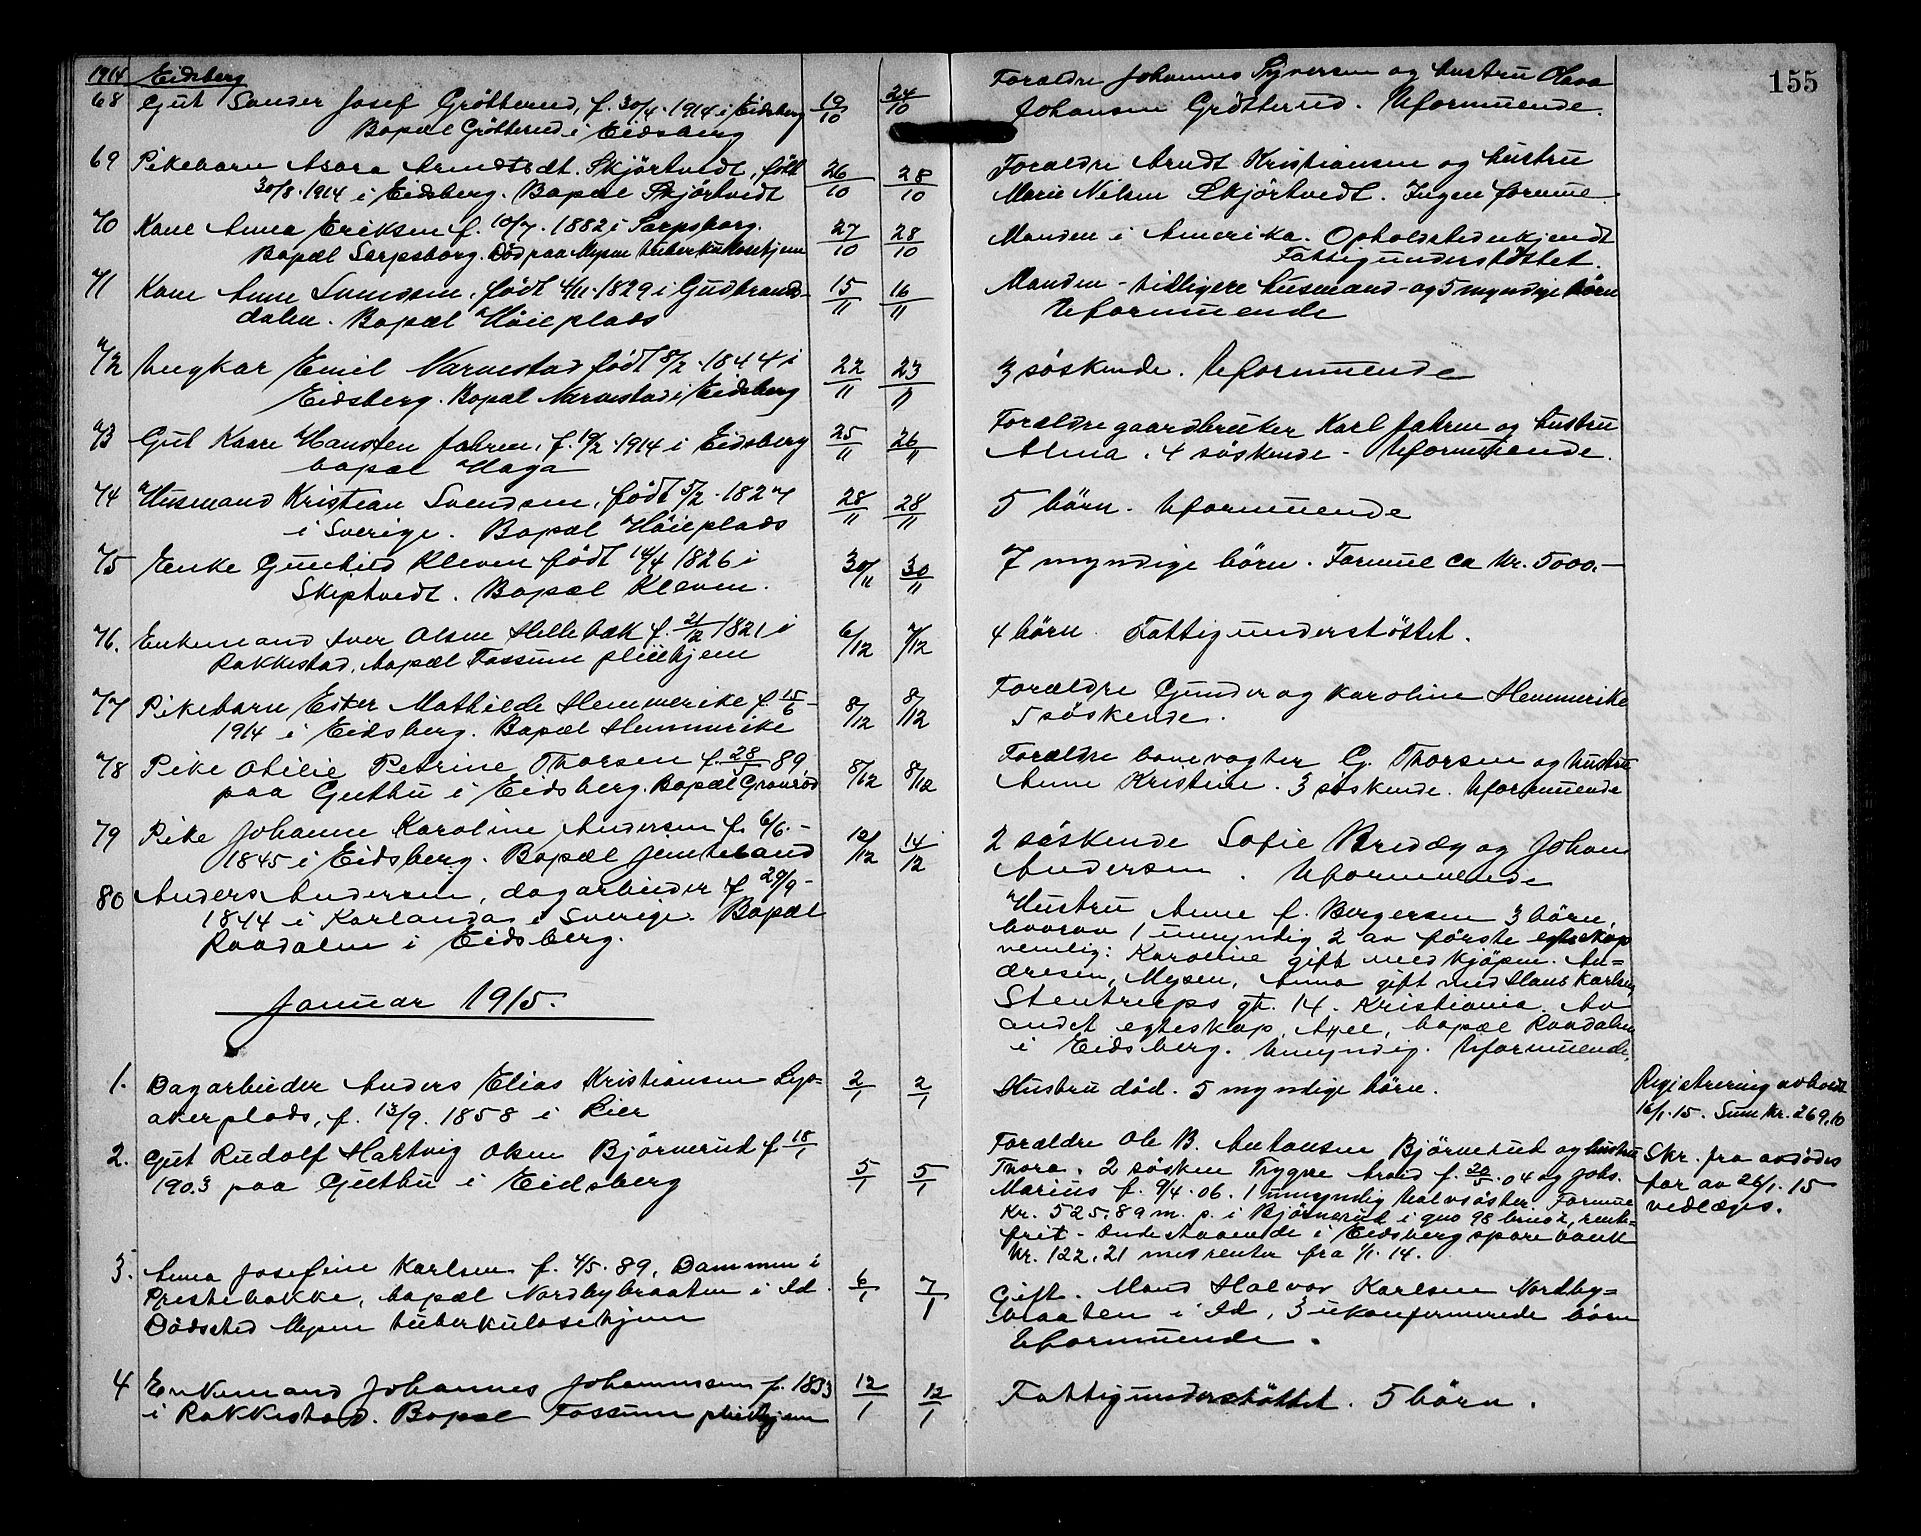 155
1914 Eidsberg
68 Gut Sander Josef Grötterud, f. 30/4 1914 i Eidsberg 19/10 24/10 Forældre Johannes Syversen og hustru Olava
Bopæl Grötterud i Eidsberg Johansen Grötterud. Uformuende.
69 Pikebarn Asora Arndtsdt. Skjörtvedt, född 26/10 28/10 Forældre Arndt Kristiansen og hustru
30/8 1914 i Eidsberg. Bopæl Skjörtvedt Marie Nilsen Skjörtvedt. Ingen formue.
70 Kone Anna Eriksen f. 10/7. 1882 i Sarpsborg. 27/10 28/10 Manden i Amerika. Opholdsted ukjendt
Bopæl Sarpsborg. Död paa Mysen tuberkulosehjem Fattigunderstöttet.
71 Kone Anne Svendsen, födt 4/11 1829 i Gudbrands- 15/11 16/11 Manden - tidligere husmand - og 5 myndige börn
dalen. Bopæl Höieplads Uformuende
72 Ungkar Emil Narvestad födt 8/2 1844 i 22/11 23/11 3 söskende. Uformuende
Eidsberg. Bopæl Narvestad i Eidsberg
73 Gut Kaare Hansten Jahren, f. 19/2 1914 i Eidsberg 25/11 26/11 Forældre gaardbruker Karl Jahren og hustru
bopæl Haga Alma. 4 söskende - Uformuende.
74 Husmand Kristian Svendsen, födt 5/2 1827 28/11 28/11 5 börn. Uformuende
i Sverige. Bopæl Höieplads
75 Enke Gunhild Kleven födt 14/4 1826 i 30/11 30/11 7 myndige börn. Formue ca kr. 5000.-
Skiptvedt. Bopæl Kleven.
76. Enkemand Iver Olsen Hellebæk f. 21/12 1821 i 6/12 7/12 4 börn. Fattigunderstöttet.
Rakkestad, bopæl Fossum pleiehjem
77 Pikebarn Ester Mathilde Hemmerike f. 15/6- 8/12 8/12 Forældre Gunder og Karoline Hemmerike
1914 i Eidsberg. Bopæl Hemmerike 5 söskende.
78 Pike Otilie Petrine Thorsen f. 28/ 89 8/12 8/12 Forældre banevogter G. Thorsen og hustru
paa Guthu i Eidsberg. Bopæl Granrød Anne Kristine. 3 söskende. Uformuende
79 Pike Johanne Karoline Andersen f. 6/6.- 12/12 14/12 2 söskende Sofie Bredæg og Johan
1845 i Eidsberg. Bopæl Jentebaand Andersen. Uformuende
80 Anders Andersen, dagarbeider f 29/9- Hustru Anne f. Bergersen 3 börn,
1844 i Karlanda i Sverige. Bopæl hvorav 1 umyndig. 2 av förste egteskap
Raadalen i Eidsberg. nemlig: Karoline gift med kjöpm. An=
dresen, Mysen, Anna gift med Hans Karlsen
Stentrups gt. 14. Kristiania. Av
andet egteskap Axel, bopæl Raadalen
i Eidsberg. Umyndig. Uformuende.
Januar 1915.
1. Dagarbeider Anders Elias Kristiansen Lys= 2/1 2/1 Hustru död. 5 myndige börn. Registrering avholdt
akerplads, f. 13/9. 1858 i Lier 16/1. 15. Sum kr. 269.10
2. Gut Rudolf Hartvig Olsen Björnerud f 18/1 5/1 5/1 Forældre Ole B. Antonsen Björnerud og hustru Skr. fra avdödes
1903 paa Guthu i Eidsberg Thora. 2 sösken Trygve Arvid f. 20/5 04 og Johs. far av 26/1. 15
Marius f. 9/4. 06. 1 umyndig halvsöster. Formue vedlægges.
Kr. 525.89 m. p. i Björnerud i gno 98 bno 2, rente=
frit - Indestaaende i Eidsberg sparebank
kr. 122.21 med renter fra 1/1. 14.
3. Anna Josefine Karlsen f. 4/5. 89, Dammen i 6/1 7/1 Gift. Mand Halvor Karlsen Nordby=
Prestebakke, bopæl Nordbybraaten i Id. braaten i Id, 3 ukonfirmerede börn
Dödssted Mysen tuberkulosehjem Uformuende.
4 Enkemand Johannes Johannesen f. 1833 12/1 12/1 Fattigunderstöttet. 5 börn.
i Rakkestad. Bopæl Fossum pleiehjem